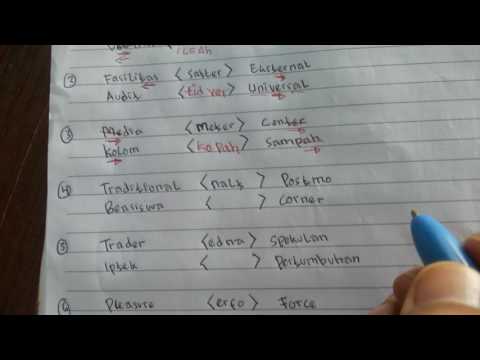 ② Fasilitas < satter > Eksternal
Audit < tid ver > Universal
③ Media < meker > Center
Kolom < kopah > Sampah
④ Traditional < nals > Postmo
Beasiswa < > Corner
⑤ Trader < edma > Spekulan
Iptek < > Pertumbuhan
⑥ Pleasure < erfo > Force